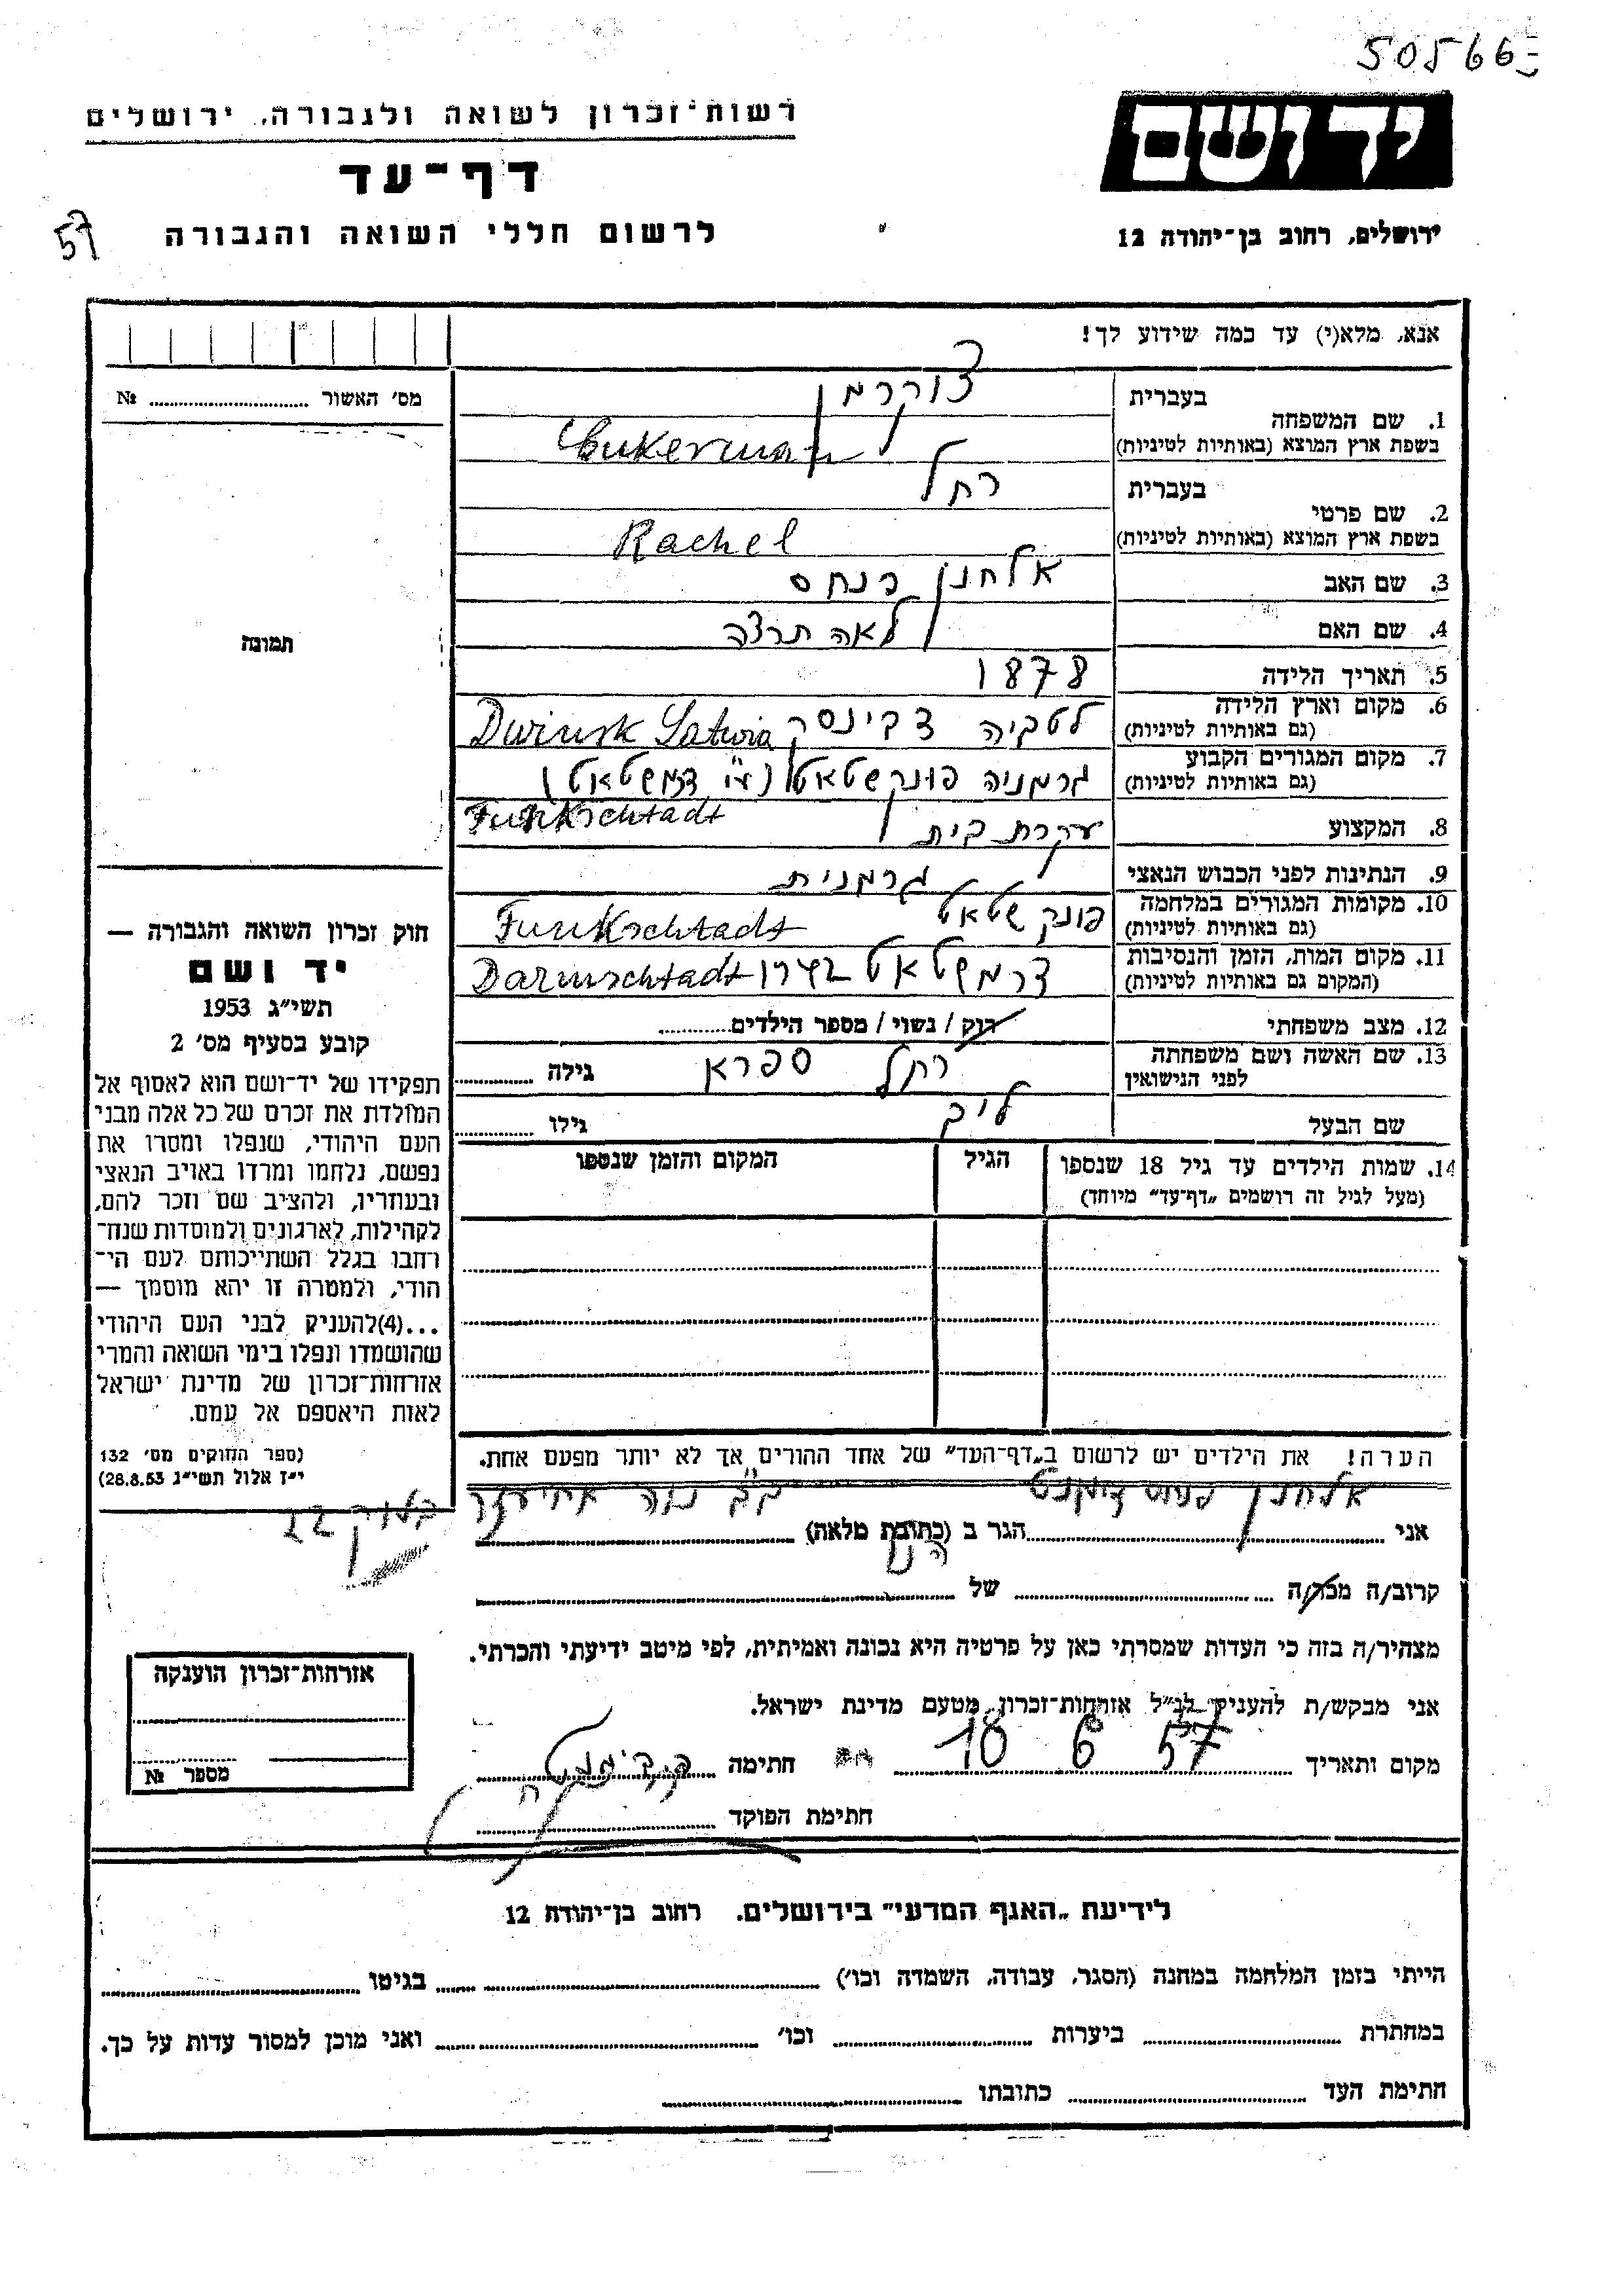 50566
יד ושם
רשות־זכרון לשואה ולגבורה, ירושלים
דף־עד
ירושלים, רחוב בן־יהודה 12
לרשום חללי השואה והגבורה
57
אנא, מלא(י) עד כמה שידוע לך!
מס׳ האשור № 
1. שם המשפחה
בעברית צוקרמן
בשפת ארץ המוצא (באותיות לטיניות) Cukerman
2. שם פרטי
בעברית רחל
בשפת ארץ המוצא (באותיות לטיניות) Rachel
3. שם האב אלחנן פנחס
4. שם האם לאה תרצה
תמונה
5. תאריך הלידה 1878
6. מקום וארץ הלידה לטביה דבינסק Dwinsk Latwia
(גם באותיות לטיניות)
7. מקום המגורים הקבוע גרמניה פונקשטאט (ע"י דרמשטאט)
(גם באותיות לטיניות) Funkschtadt
8. המקצוע עקרת בית
9. הנתינות לפני הכבוש הנאצי גרמנית
10. מקומות המגורים במלחמה פונקשטאט Funkschtadt
(גם באותיות לטיניות)
11. מקום המות, הזמן והנסיבות דרמשטאט Darmschtadt
(המקום גם באותיות לטיניות)
12. מצב משפחתי רוק / נשוי / מספר הילדים
13. שם האשה ושם משפחתה רחל ספרא גילה
לפני הנישואין
שם הבעל ליב גילו
14. שמות הילדים עד גיל 18 שנספו הגיל המקום והזמן שנספו
(מעל לגיל זה רושמים „דף־עד" מיוחד)
חוק זכרון השואה והגבורה —
יד ושם
תשי״ג 1953
קובע בסעיף מס׳ 2
תפקידו של יד־ושם הוא לאסוף אל
המולדת את זכרם של כל אלה מבני
העם היהודי, שנפלו ומסרו את
נפשם, נלחמו ומרדו באויב הנאצי
ובעוזריו, ולהציב שם וזכר להם,
לקהילות, לארגונים ולמוסדות שנח־
רחבו בגלל השתייכותם לעם הי־
הודי, ולמטרה זו יהא מוסמך —
...(4)להעניק לבני העם היהודי
שהושמדו ונפלו בימי השואה והמרי
אזרחות־זכרון של מדינת ישראל
לאות היאספם אל עמם.
(ספר החוקים מס׳ 132
י״ז אלול תשי״ג 28.8.53)
הערה! את הילדים יש לרשום ב„דף־העד" של אחד ההורים אך לא יותר מפעם אחת.
אני אלחנן הגר ב (כתובת מלאה) 22
קרוב/ה מכר/ה של
מצהיר/ה בזה כי העדות שמסרתי כאן על פרטיה היא נכונה ואמיתית, לפי מיטב ידיעתי והכרתי.
אני מבקש/ת להעניק לנ״ל אזרחות־זכרון מטעם מדינת ישראל.
מקום ותאריך 10 6 57 חתימה
חתימת הפוקד
אזרחות־זכרון הוענקה
מספר №
לידיעת „האגף המדעי" בירושלים. רחוב בן־יהודה 12
הייתי בזמן המלחמה במחנה (הסגר, עבודה, השמדה וכו׳) בגיטו
במחתרת ביערות וכו׳ ואני מוכן למסור עדות על כך.
חתימת העד כתובתו